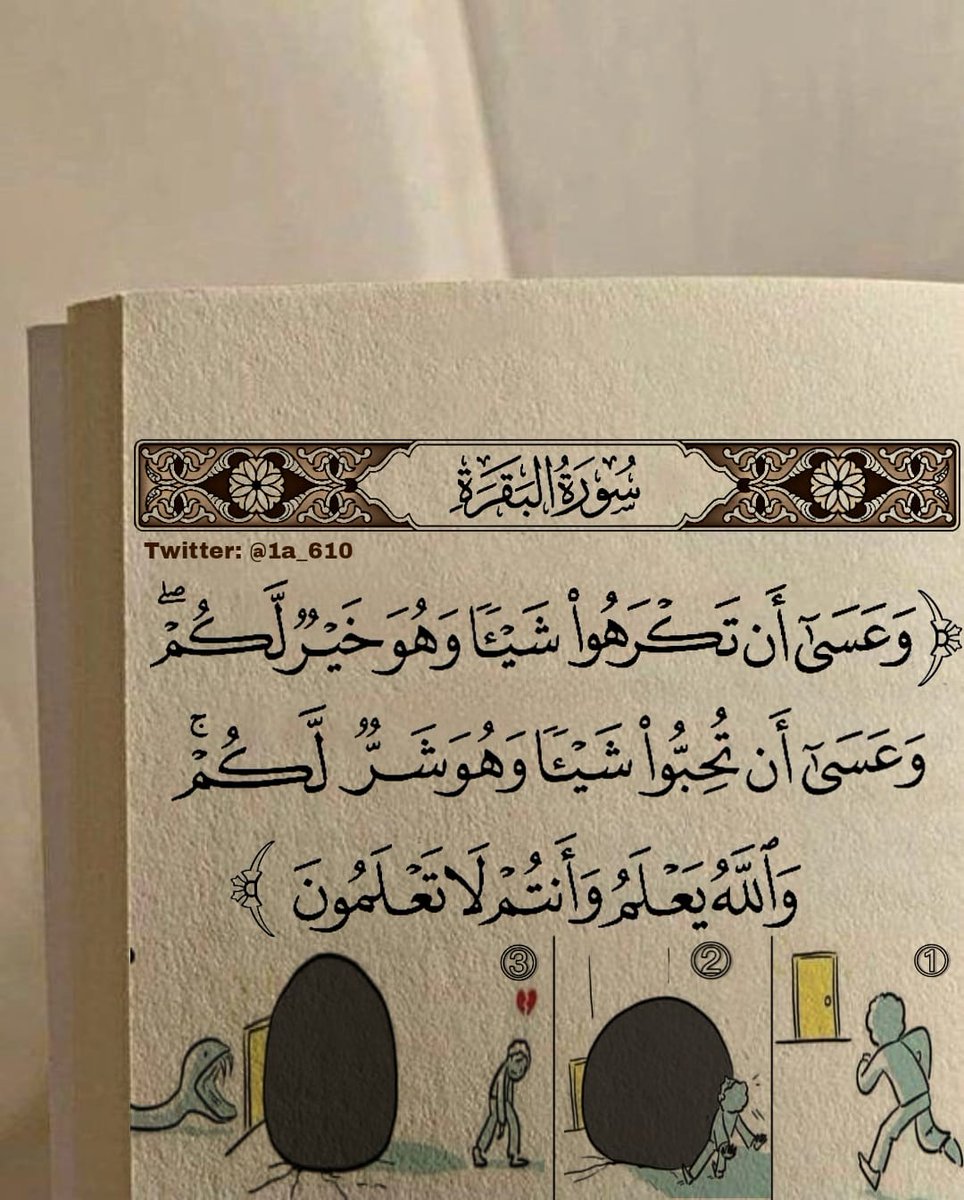 سُورَةُ البَقَرَةِ
Twitter: @1a_610
﴿ وَعَسَىٰٓ أَن تَكۡرَهُواْ شَيۡـٔٗا وَهُوَ خَيۡرٞ لَّكُمۡۖ
وَعَسَىٰٓ أَن تُحِبُّواْ شَيۡـٔٗا وَهُوَ شَرّٞ لَّكُمۡۚ
وَٱللَّهُ يَعۡلَمُ وَأَنتُمۡ لَا تَعۡلَمُونَ ﴾
① ② ③